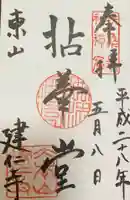 奉拝
平成二十八年
五月八日
拈華堂
東山
建仁寺